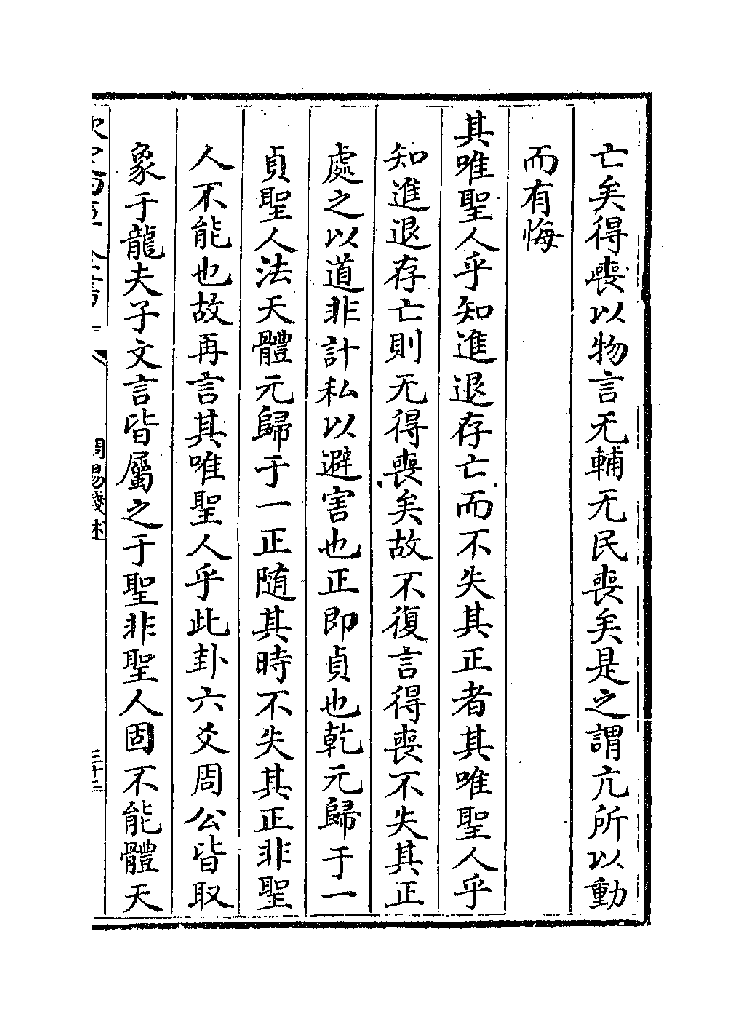 亡矣得喪以物言无輔无民喪矣是之謂亢所以動
而有悔
其唯聖人乎知進退存亡而不失其正者其唯聖人乎
知進退存亡則无得喪矣故不復言得喪不失其正
處之以道非計私以避害也正即貞也乾元歸于一
貞聖人法天體元歸于一正随其時不失其正非聖
人不能也故再言其唯聖人乎此卦六爻周公皆取
象于龍夫子文言皆屬之于聖非聖人固不能體天
周易淺述